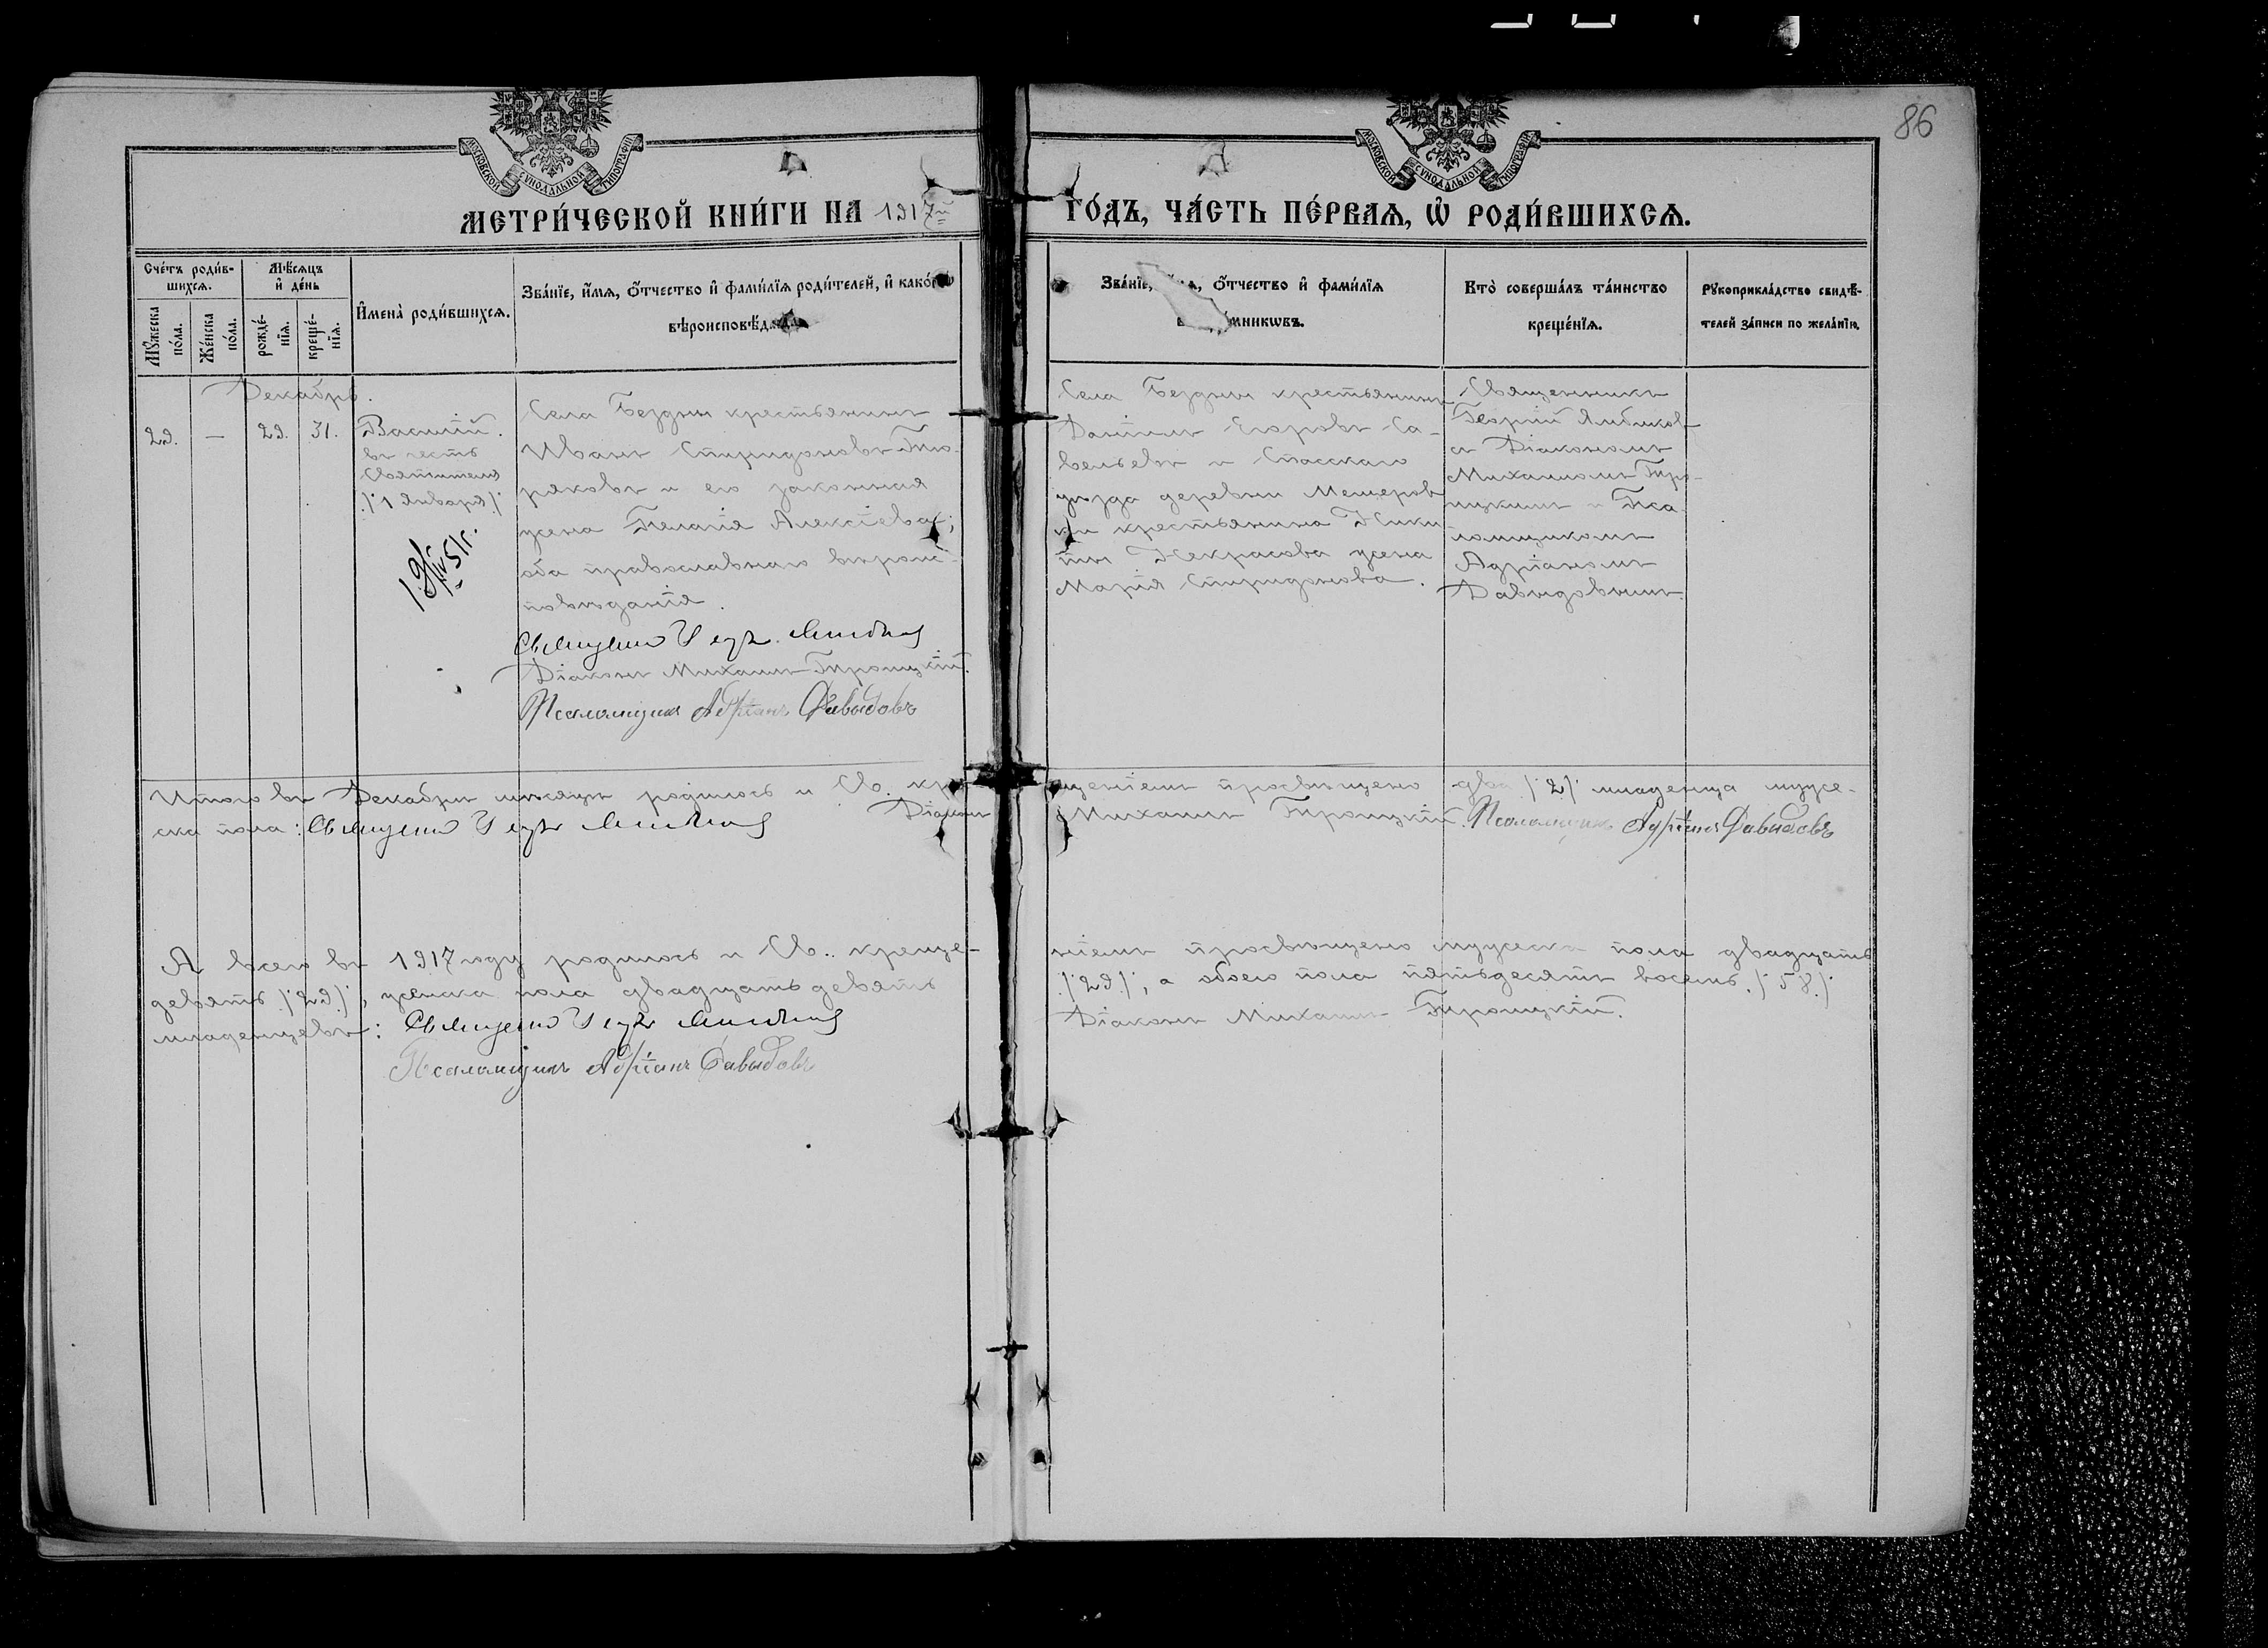 86
МОСКОВСКОЙ СѴНОДАЛЬНОЙ ТИПОГРАФІИ
МОСКОВСКОЙ СѴНОДАЛЬНОЙ ТИПОГРАФІИ
МЕТРИ́ЧЕСКОЙ КНИ́ГИ НА 1917й ГО́ДЪ, ЧА́СТЬ ПЕ́РВАѦ, Ѡ҆ РОДИ́ВШИХСѦ.
Сче́тъ роди́в-
шихсѧ.
Мꙋ́жеска по́ла.
Же́нска по́ла.
Мѣ́сѧцъ и҆ де́нь
рожде́-нїѧ.
креще́-нїѧ.
И҆мена̀ роди́вшихсѧ.
Зва́нїе, и҆́мѧ, ѻ҆́тчество и҆ фами́лїѧ роди́телей, и҆ како́гѡ
вѣроисповѣ́д
Зва́нїе, ѻ҆́тчество и҆ фами́лїѧ
Кто̀ соверша́лъ та́инство
креще́нїѧ.
Рꙋкоприкла́дство свидѣ́-
телей за́писи по жела́нїю.
Декабрь.
29. — 29. 31.
Василій.
въ честь
Святителя
/:1 Января:/
19/IV 51г.
Села Бездны крестьянинъ
Иванъ Спиридоновъ
ряковъ и его законная
жена Пелагія Алексіева;
оба православнаго вѣроис-
повѣданія.
Діаконъ Михаилъ Троицкій.
Псаломщикъ Адріанъ Давыдовъ
Села Бездны крестьянинъ
Даніилъ Егоровъ Са-
вельевъ и Спасскаго
уѣзда деревни
ки крестьянина Ники-
ты Некрасова жена
Марія Спиридонова.
Священникъ
Георгій
съ Діакономъ
Михаиломъ Трои-
цкимъ и Пса-
ломщикомъ
Адріаномъ
Давыдовымъ.
Итого въ Декабрѣ мѣсяцѣ родилось и Св. кре щеніемъ просвѣщено два /:2:/ младенца муже-
ска пола: Діаконъ Михаилъ Троицкій. Псаломщикъ Адріанъ Давыдовъ
А всего въ 1917 году родилось и Св. креще- ніемъ просвѣщено мужеска пола двадцать
девять /:29:/, женска пола двадцать девять /:29:/, а обоего пола пятьдесятъ восемь /:58:/
младенцевъ: Діаконъ Михаилъ Троицкій.
Псаломщикъ Адріанъ Давыдовъ